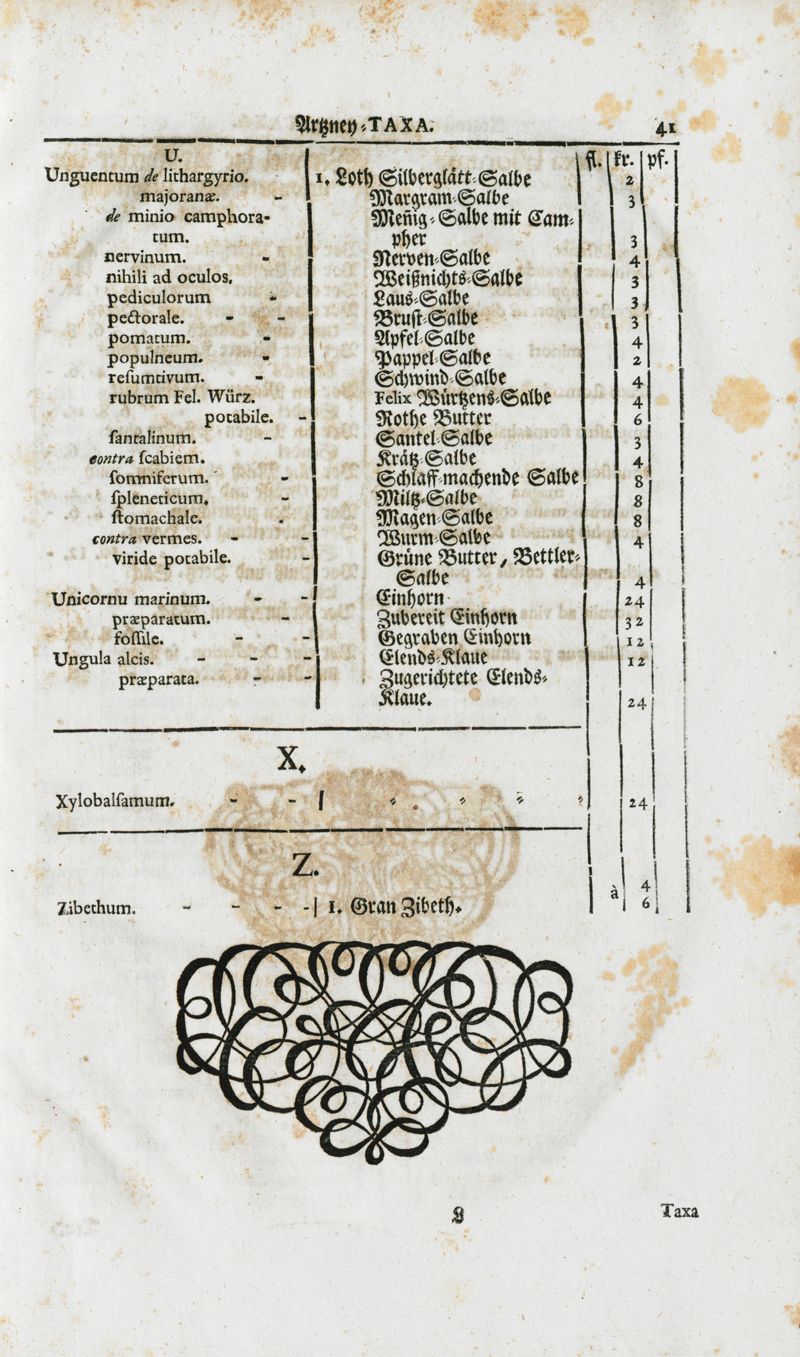 Artzney-TAXA. 41
U. fl. kr. pf.
Unguentum de lithargyrio. 1. Loth Silberglätt-Salbe 2
majoranæ. - Margram-Salbe 3
de minio camphora- Meñig-Salbe mit Cam-
tum. pher 3
nervinum. - Nerven-Salbe 4
nihili ad oculos. Weißnichts-Salbe 3
pediculorum - Laus-Salbe 3
pectorale. - - Brust-Salbe 3
pomatum. - Apfel-Salbe 4
populneum. - Pappel-Salbe 2
reſumtivum. - Schwind-Salbe 4
rubrum Fel. Würz. Felix Würtzens-Salbe 4
potabile. - Rothe Butter 6
ſantalinum. - Santel-Salbe 3
contra ſcabiem. Krätz-Salbe 4
ſomniferum. - Schlaff-machende Salbe 8
ſpleneticum. - Miltz-Salbe 8
ſtomachale. - Magen-Salbe 8
contra vermes. - - Wurm-Salbe 4
viride potabile. - Grüne Butter, Bettler-
Salbe 4
Unicornu marinum. - - Einhorn 24
præparatum. - Zubereit Einhorn 32
foſſile. - - Gegraben Einhorn 12
Ungula alcis. - - - Elends-Klaue 12
præparata. - - Zugerichtete Elends-
Klaue. 24
X.
Xylobalſamum. - - 24
Z.
à 4
Zibethum. - - - - 1. Gran Zibeth. 6
L Taxa